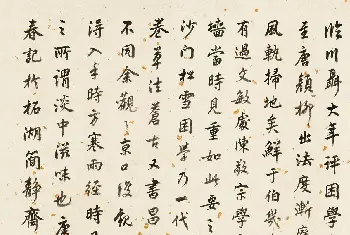 臨川聶大年評困學
至唐顏柳出法度漸
風軌掃地矣鮮于伯幾
有過文敏處陳敬宗學
墻當時見重如此要之
沙門松雪困學乃一代
卷章法蒼古又書昌
不同余觀之京口後鈔
得入手時方寒雨經時
之所謂淡中滋味也庚
春記於柘湖簡靜齋